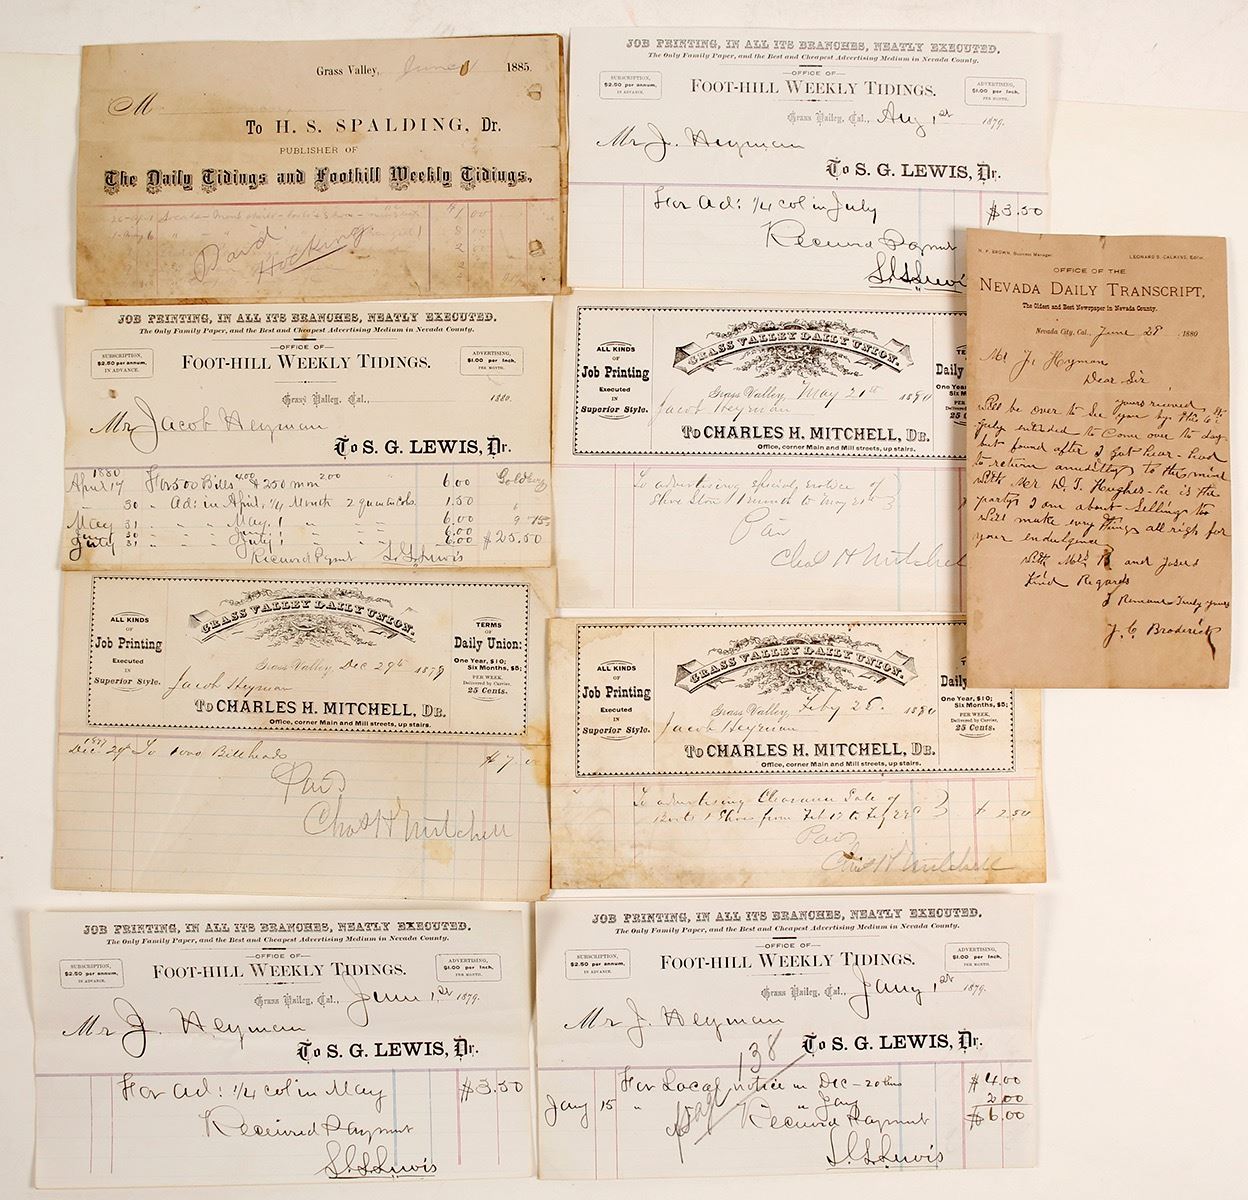 Grass Valley, June 1885.
M
To H. S. SPALDING, Dr.
PUBLISHER OF
The Daily Tidings and Foothill Weekly Tidings,
David
Hocking
JOB PRINTING, IN ALL ITS BRANCHES, NEATLY EXECUTED.
The Only Family Paper, and the Best and Cheapest Advertising Medium in Nevada County.
SUBSCRIPTION, $2.50 per annum, IN ADVANCE.
OFFICE OF
FOOT-HILL WEEKLY TIDINGS.
ADVERTISING, $1.00 per Inch, PER MONTH.
Grass Valley, Cal., Aug 1st 1879.
Mr J. Heyman
To S. G. LEWIS, Dr.
For Ad: 1/4 col in July $3.50
Received Payment
S.G. Lewis
N. P. BROWN, Business Manager. LEONARD S. CALKINS, Editor.
OFFICE OF THE
NEVADA DAILY TRANSCRIPT,
The Oldest and Best Newspaper in Nevada County.
Nevada City, Cal., June 28 1880
Mr J. Heyman
Dear Sir
yours recieved
Will be over to See you by the 6th
July entended to Come over to day
but found after I got hear - head
to return
with Mr D. T. Hughes - he is the
party I am about Selling to
Will make evry things all righ for
your endulgence
With Mrs B and Joseis
Kind Regards
I Remane Truly yours
J. C Broderick
JOB PRINTING, IN ALL ITS BRANCHES, NEATLY EXECUTED.
The Only Family Paper, and the Best and Cheapest Advertising Medium in Nevada County.
SUBSCRIPTION, $2.50 per annum, IN ADVANCE.
OFFICE OF
FOOT-HILL WEEKLY TIDINGS.
ADVERTISING, $1.00 per Inch, PER MONTH.
Grass Valley, Cal., 1880.
Mr Jacob Heyman
To S. G. LEWIS, Dr.
1880
April 17 For 500 Bills 4.00 & 250 mm 2.00 6.00
" 30 " Ad: in April, 1/4 Month 2 quar cols. 1.50
May 31 " " " May. 1 " " 6.00
June 30 " " " June; 1 " " 6.00
July 31 " " " July; 1 " " 6.00 $25.50
Received Pymnt S. G. Lewis
ALL KINDS
OF
Job Printing
Executed
IN
Superior Style.
GRASS VALLEY DAILY UNION.
TERMS
OF
Daily
One Year
Six M
Grass Valley, May 21st 1880
Jacob Heyman
To CHARLES H. MITCHELL, DR.
Office, corner Main and Mill streets, up stairs.
To advertising special, notice of
Shoe Store 1 month to May 21st
Paid
Chas H Mitchell
ALL KINDS
OF
Job Printing
Executed
IN
Superior Style.
GRASS VALLEY DAILY UNION.
TERMS
OF
Daily Union:
One Year, $10;
Six Months, $5;
PER WEEK,
Delivered by Carrier,
25 Cents.
Grass Valley, Dec 29th 1879
Jacob Heyman
To CHARLES H. MITCHELL, DR.
Office, corner Main and Mill streets, up stairs.
Dec 29 To 1000 Billheads $7.00
Paid
Chas H Mitchell
ALL KINDS
OF
Job Printing
Executed
IN
Superior Style.
GRASS VALLEY DAILY UNION.
Daily
One Year, $10;
Six Months, $5;
PER WEEK,
Delivered by Carrier,
25 Cents.
Grass Valley, Feby 28. 1880
Jacob Heyman
To CHARLES H. MITCHELL, DR.
Office, corner Main and Mill streets, up stairs.
To advertising Clearance Sale of
Boots & Shoes from Feb 12 to Feb 28th $2.50
Paid
Chas H Mitchell
JOB PRINTING, IN ALL ITS BRANCHES, NEATLY EXECUTED.
The Only Family Paper, and the Best and Cheapest Advertising Medium in Nevada County.
SUBSCRIPTION, $2.50 per annum, IN ADVANCE.
OFFICE OF
FOOT-HILL WEEKLY TIDINGS.
ADVERTISING, $1.00 per Inch, PER MONTH.
Grass Valley, Cal., June 1st 1879.
Mr J. Heyman
To S. G. LEWIS, Dr.
For Ad: 1/4 col in May $3.50
Received Payment
S.G. Lewis
JOB PRINTING, IN ALL ITS BRANCHES, NEATLY EXECUTED.
The Only Family Paper, and the Best and Cheapest Advertising Medium in Nevada County.
SUBSCRIPTION, $2.50 per annum, IN ADVANCE.
OFFICE OF
FOOT-HILL WEEKLY TIDINGS.
ADVERTISING, $1.00 per Inch, PER MONTH.
Grass Valley, Cal., Jany 1st 1879.
Mr J. Heyman
To S. G. LEWIS, Dr.
138
For Local notice in Dec - 20 lins $4.00
Jany 15 " " Jany 2.00
$6.00
Received Payment
S.G. Lewis